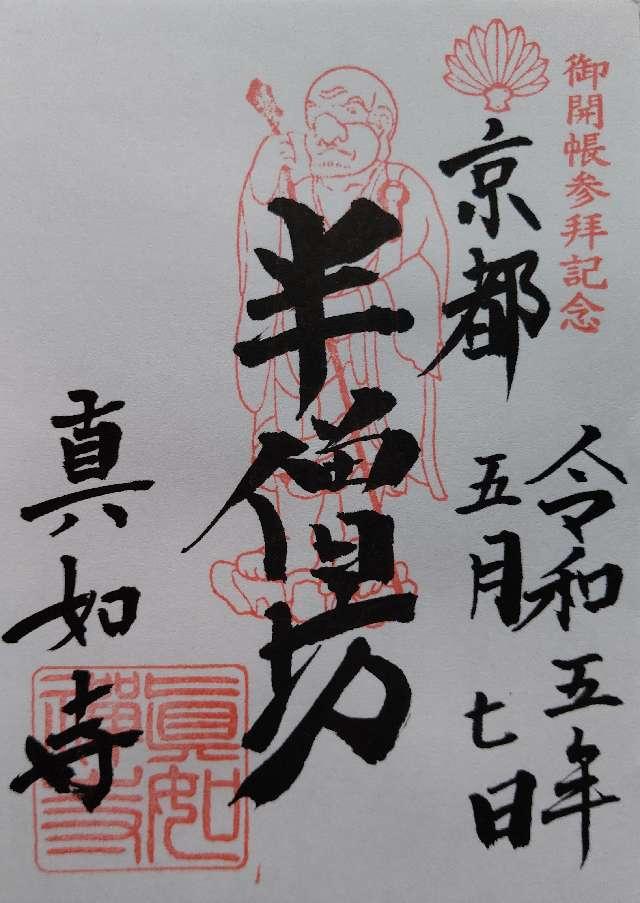 御開帳参拝記念
京都
令和五年
五月七日
半僧坊
真如寺
眞如
禅寺